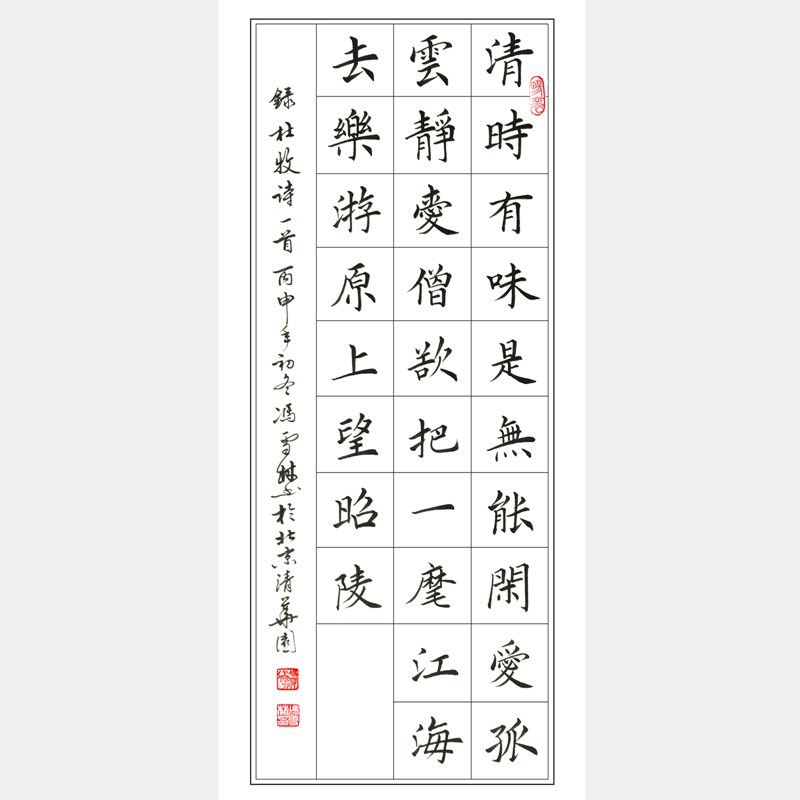 清時有味是無能閑愛孤
雲靜愛僧欲把一麾江海
去樂游原上望昭陵
錄杜牧诗一首丙申年初冬馮雪林书於北京清華園